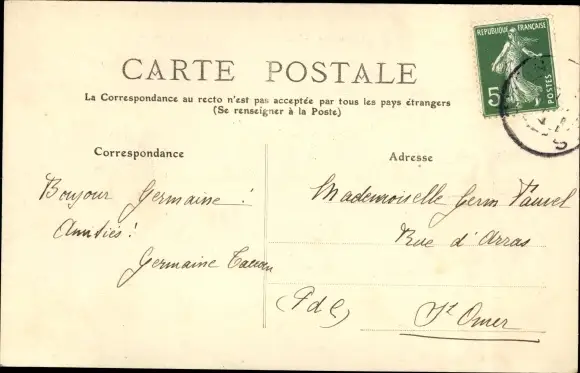 REPUBLIQUE FRANÇAISE
5
POSTES
CARTE POSTALE
La Correspondance au recto n'est pas acceptée par tous les pays étrangers
(Se renseigner à la Poste)
Correspondance
Bonjour Germaine !
Amitiés !
Germaine
Adresse
Mademoiselle Germ
Rue d'Arras
(PdC) St Omer